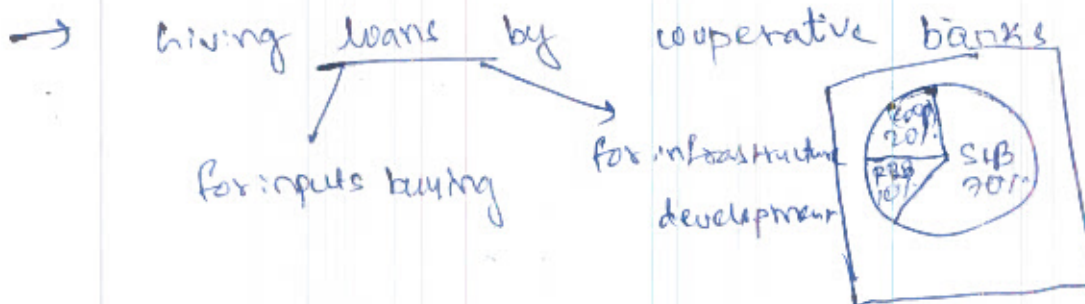 → Giving loans by cooperative banks
for inputs buying
for infrastructure
development
Coop 20%
RRB 10%
SCB 70%